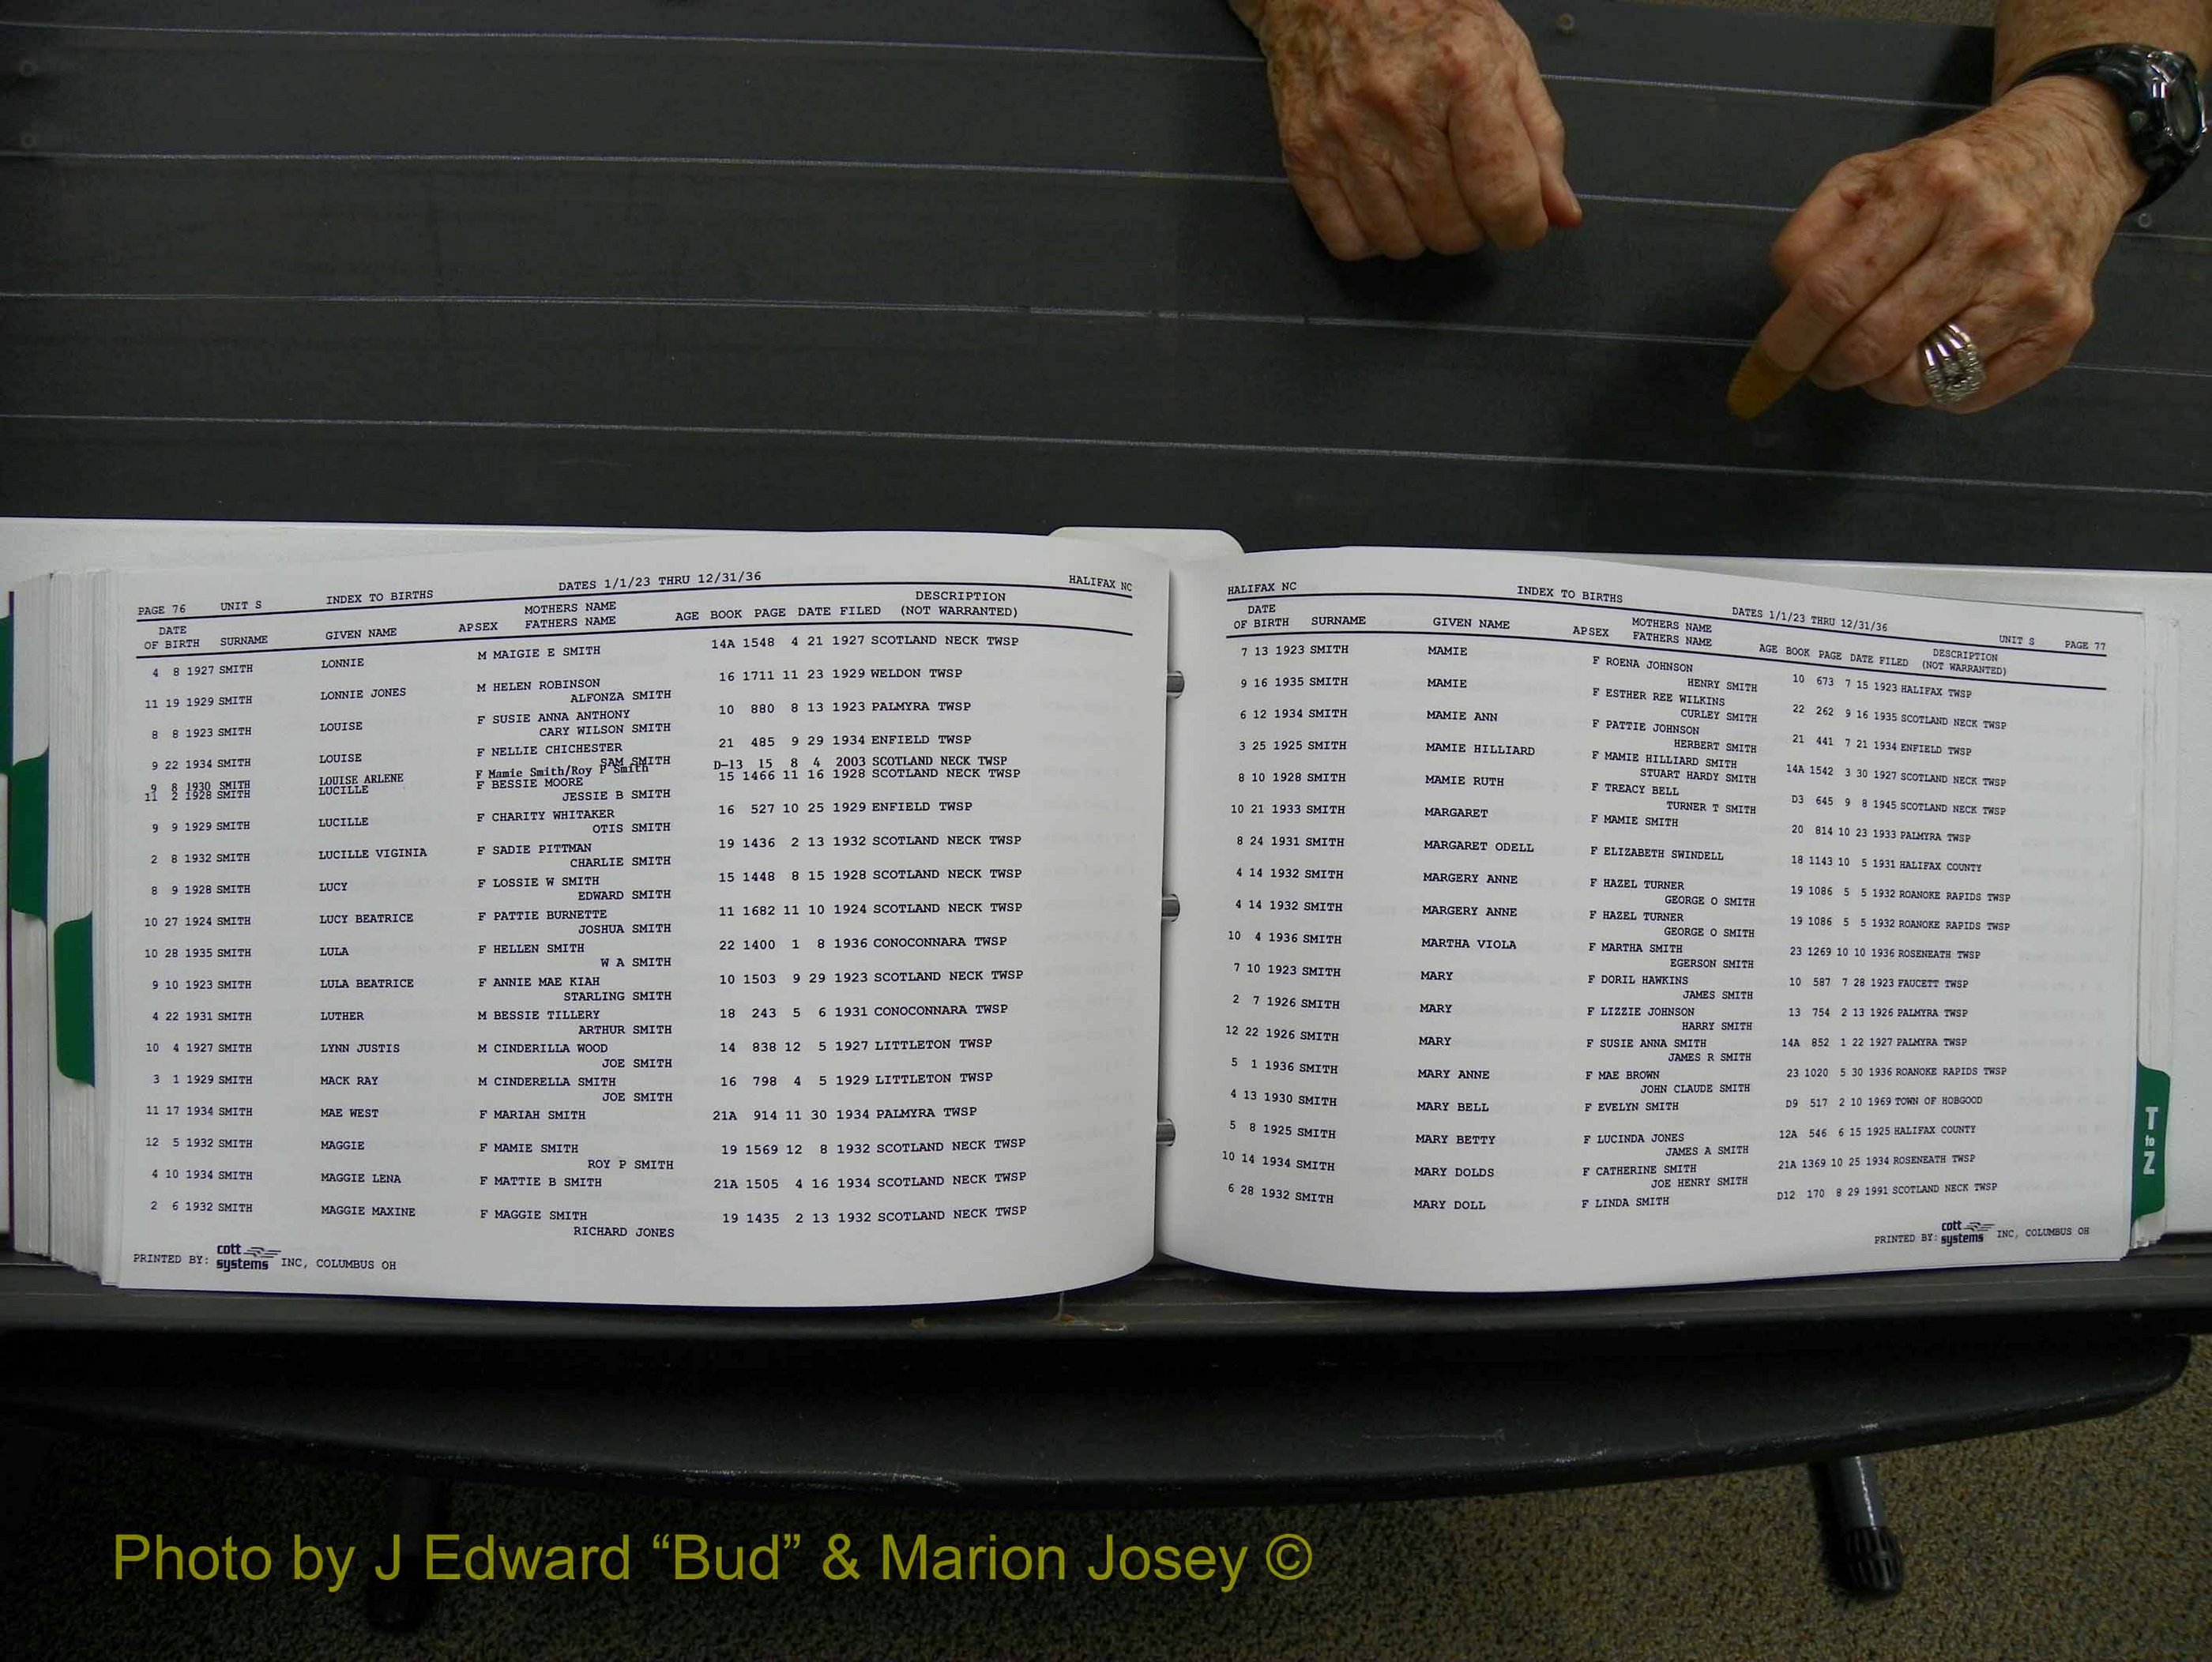 PAGE 76 UNIT S INDEX TO BIRTHS DATES 1/1/23 THRU 12/31/36 HALIFAX NC
DATE MOTHERS NAME DESCRIPTION
OF BIRTH SURNAME GIVEN NAME APSEX FATHERS NAME AGE BOOK PAGE DATE FILED (NOT WARRANTED)
4 8 1927 SMITH LONNIE M MAIGIE E SMITH 14A 1548 4 21 1927 SCOTLAND NECK TWSP
11 19 1929 SMITH LONNIE JONES M HELEN ROBINSON 16 1711 11 23 1929 WELDON TWSP
ALFONZA SMITH
8 8 1923 SMITH LOUISE F SUSIE ANNA ANTHONY 10 880 8 13 1923 PALMYRA TWSP
CARY WILSON SMITH
9 22 1934 SMITH LOUISE F NELLIE CHICHESTER 21 485 9 29 1934 ENFIELD TWSP
SAM SMITH
9 8 1930 SMITH LOUISE ARLENE F Mamie Smith/Roy P Smith D-13 15 8 4 2003 SCOTLAND NECK TWSP
11 2 1928 SMITH LUCILLE F BESSIE MOORE 15 1466 11 16 1928 SCOTLAND NECK TWSP
JESSIE B SMITH
9 9 1929 SMITH LUCILLE F CHARITY WHITAKER 16 527 10 25 1929 ENFIELD TWSP
OTIS SMITH
2 8 1932 SMITH LUCILLE VIGINIA F SADIE PITTMAN 19 1436 2 13 1932 SCOTLAND NECK TWSP
CHARLIE SMITH
8 9 1928 SMITH LUCY F LOSSIE W SMITH 15 1448 8 15 1928 SCOTLAND NECK TWSP
EDWARD SMITH
10 27 1924 SMITH LUCY BEATRICE F PATTIE BURNETTE 11 1682 11 10 1924 SCOTLAND NECK TWSP
JOSHUA SMITH
10 28 1935 SMITH LULA F HELLEN SMITH 22 1400 1 8 1936 CONOCONNARA TWSP
W A SMITH
9 10 1923 SMITH LULA BEATRICE F ANNIE MAE KIAH 10 1503 9 29 1923 SCOTLAND NECK TWSP
STARLING SMITH
4 22 1931 SMITH LUTHER M BESSIE TILLERY 18 243 5 6 1931 CONOCONNARA TWSP
ARTHUR SMITH
10 4 1927 SMITH LYNN JUSTIS M CINDERILLA WOOD 14 838 12 5 1927 LITTLETON TWSP
JOE SMITH
3 1 1929 SMITH MACK RAY M CINDERELLA SMITH 16 798 4 5 1929 LITTLETON TWSP
JOE SMITH
11 17 1934 SMITH MAE WEST F MARIAH SMITH 21A 914 11 30 1934 PALMYRA TWSP
12 5 1932 SMITH MAGGIE F MAMIE SMITH 19 1569 12 8 1932 SCOTLAND NECK TWSP
ROY P SMITH
4 10 1934 SMITH MAGGIE LENA F MATTIE B SMITH 21A 1505 4 16 1934 SCOTLAND NECK TWSP
2 6 1932 SMITH MAGGIE MAXINE F MAGGIE SMITH 19 1435 2 13 1932 SCOTLAND NECK TWSP
RICHARD JONES
PRINTED BY: cott systems INC, COLUMBUS OH
HALIFAX NC INDEX TO BIRTHS DATES 1/1/23 THRU 12/31/36 UNIT S PAGE 77
DATE MOTHERS NAME DESCRIPTION
OF BIRTH SURNAME GIVEN NAME APSEX FATHERS NAME AGE BOOK PAGE DATE FILED (NOT WARRANTED)
7 13 1923 SMITH MAMIE F ROENA JOHNSON 10 673 7 15 1923 HALIFAX TWSP
HENRY SMITH
9 16 1935 SMITH MAMIE F ESTHER REE WILKINS 22 262 9 16 1935 SCOTLAND NECK TWSP
CURLEY SMITH
6 12 1934 SMITH MAMIE ANN F PATTIE JOHNSON 21 441 7 21 1934 ENFIELD TWSP
HERBERT SMITH
3 25 1925 SMITH MAMIE HILLIARD F MAMIE HILLIARD SMITH 14A 1542 3 30 1927 SCOTLAND NECK TWSP
STUART HARDY SMITH
8 10 1928 SMITH MAMIE RUTH F TREACY BELL D3 645 9 8 1945 SCOTLAND NECK TWSP
TURNER T SMITH
10 21 1933 SMITH MARGARET F MAMIE SMITH 20 814 10 23 1933 PALMYRA TWSP
8 24 1931 SMITH MARGARET ODELL F ELIZABETH SWINDELL 18 1143 10 5 1931 HALIFAX COUNTY
4 14 1932 SMITH MARGERY ANNE F HAZEL TURNER 19 1086 5 5 1932 ROANOKE RAPIDS TWSP
GEORGE O SMITH
4 14 1932 SMITH MARGERY ANNE F HAZEL TURNER 19 1086 5 5 1932 ROANOKE RAPIDS TWSP
GEORGE O SMITH
10 4 1936 SMITH MARTHA VIOLA F MARTHA SMITH 23 1269 10 10 1936 ROSENEATH TWSP
EGERSON SMITH
7 10 1923 SMITH MARY F DORIL HAWKINS 10 587 7 28 1923 FAUCETT TWSP
JAMES SMITH
2 7 1926 SMITH MARY F LIZZIE JOHNSON 13 754 2 13 1926 PALMYRA TWSP
HARRY SMITH
12 22 1926 SMITH MARY F SUSIE ANNA SMITH 14A 852 1 22 1927 PALMYRA TWSP
JAMES R SMITH
5 1 1936 SMITH MARY ANNE F MAE BROWN 23 1020 5 30 1936 ROANOKE RAPIDS TWSP
JOHN CLAUDE SMITH
4 13 1930 SMITH MARY BELL F EVELYN SMITH D9 517 2 10 1969 TOWN OF HOBGOOD
5 8 1925 SMITH MARY BETTY F LUCINDA JONES 12A 546 6 15 1925 HALIFAX COUNTY
JAMES A SMITH
10 14 1934 SMITH MARY DOLDS F CATHERINE SMITH 21A 1369 10 25 1934 ROSENEATH TWSP
JOE HENRY SMITH
6 28 1932 SMITH MARY DOLL F LINDA SMITH D12 170 8 29 1991 SCOTLAND NECK TWSP
PRINTED BY: cott systems INC, COLUMBUS OH
T to Z
Photo by J Edward “Bud” & Marion Josey ©